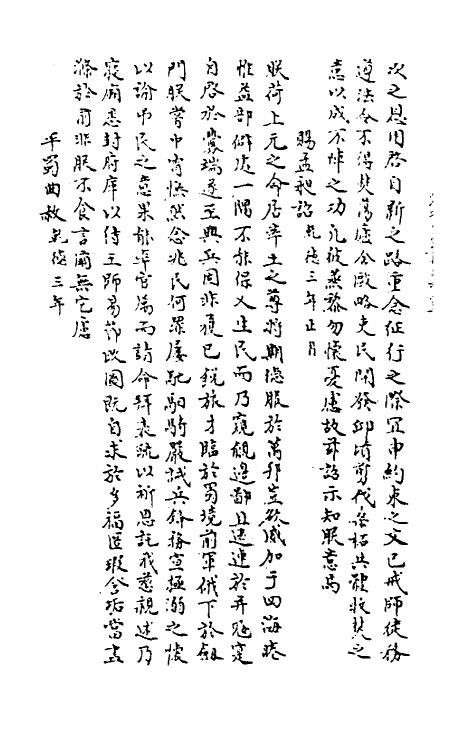 次之恩用啓自新之路重念征行之際宜申約束之文已戒師徒務
遵法令不得焚蕩廬舍敺略吏民開發邱墳翦伐桑柘共體救焚之
意以成不陣之功凡彼蒸黎勿懷憂慮故茲詔示知朕意焉
賜孟昶詔乾德三年正月
朕荷上元之命居率土之尊將期德服於萬邦豈欲威加于四海睠
惟益部僻處一隅不能保乂生民而乃窺覦邊鄙且連連於并寇寔
自啓於釁端遂至興兵固非獲已銳旅才臨於蜀境前軍俄下於劔
門朕嘗中宵憮然念兆民何罪屢馳馹騎嚴誡兵鋒務宣拯溺之懷
以諭弔民之意果能率官屬而請命拜表疏以祈恩託戎慈親述乃
寢廟悉封府庫以待王師易節改圖既自求於多福匿瑕含垢當盡
滌於前非朕不食言爾無它慮
平蜀曲赦乾德三年